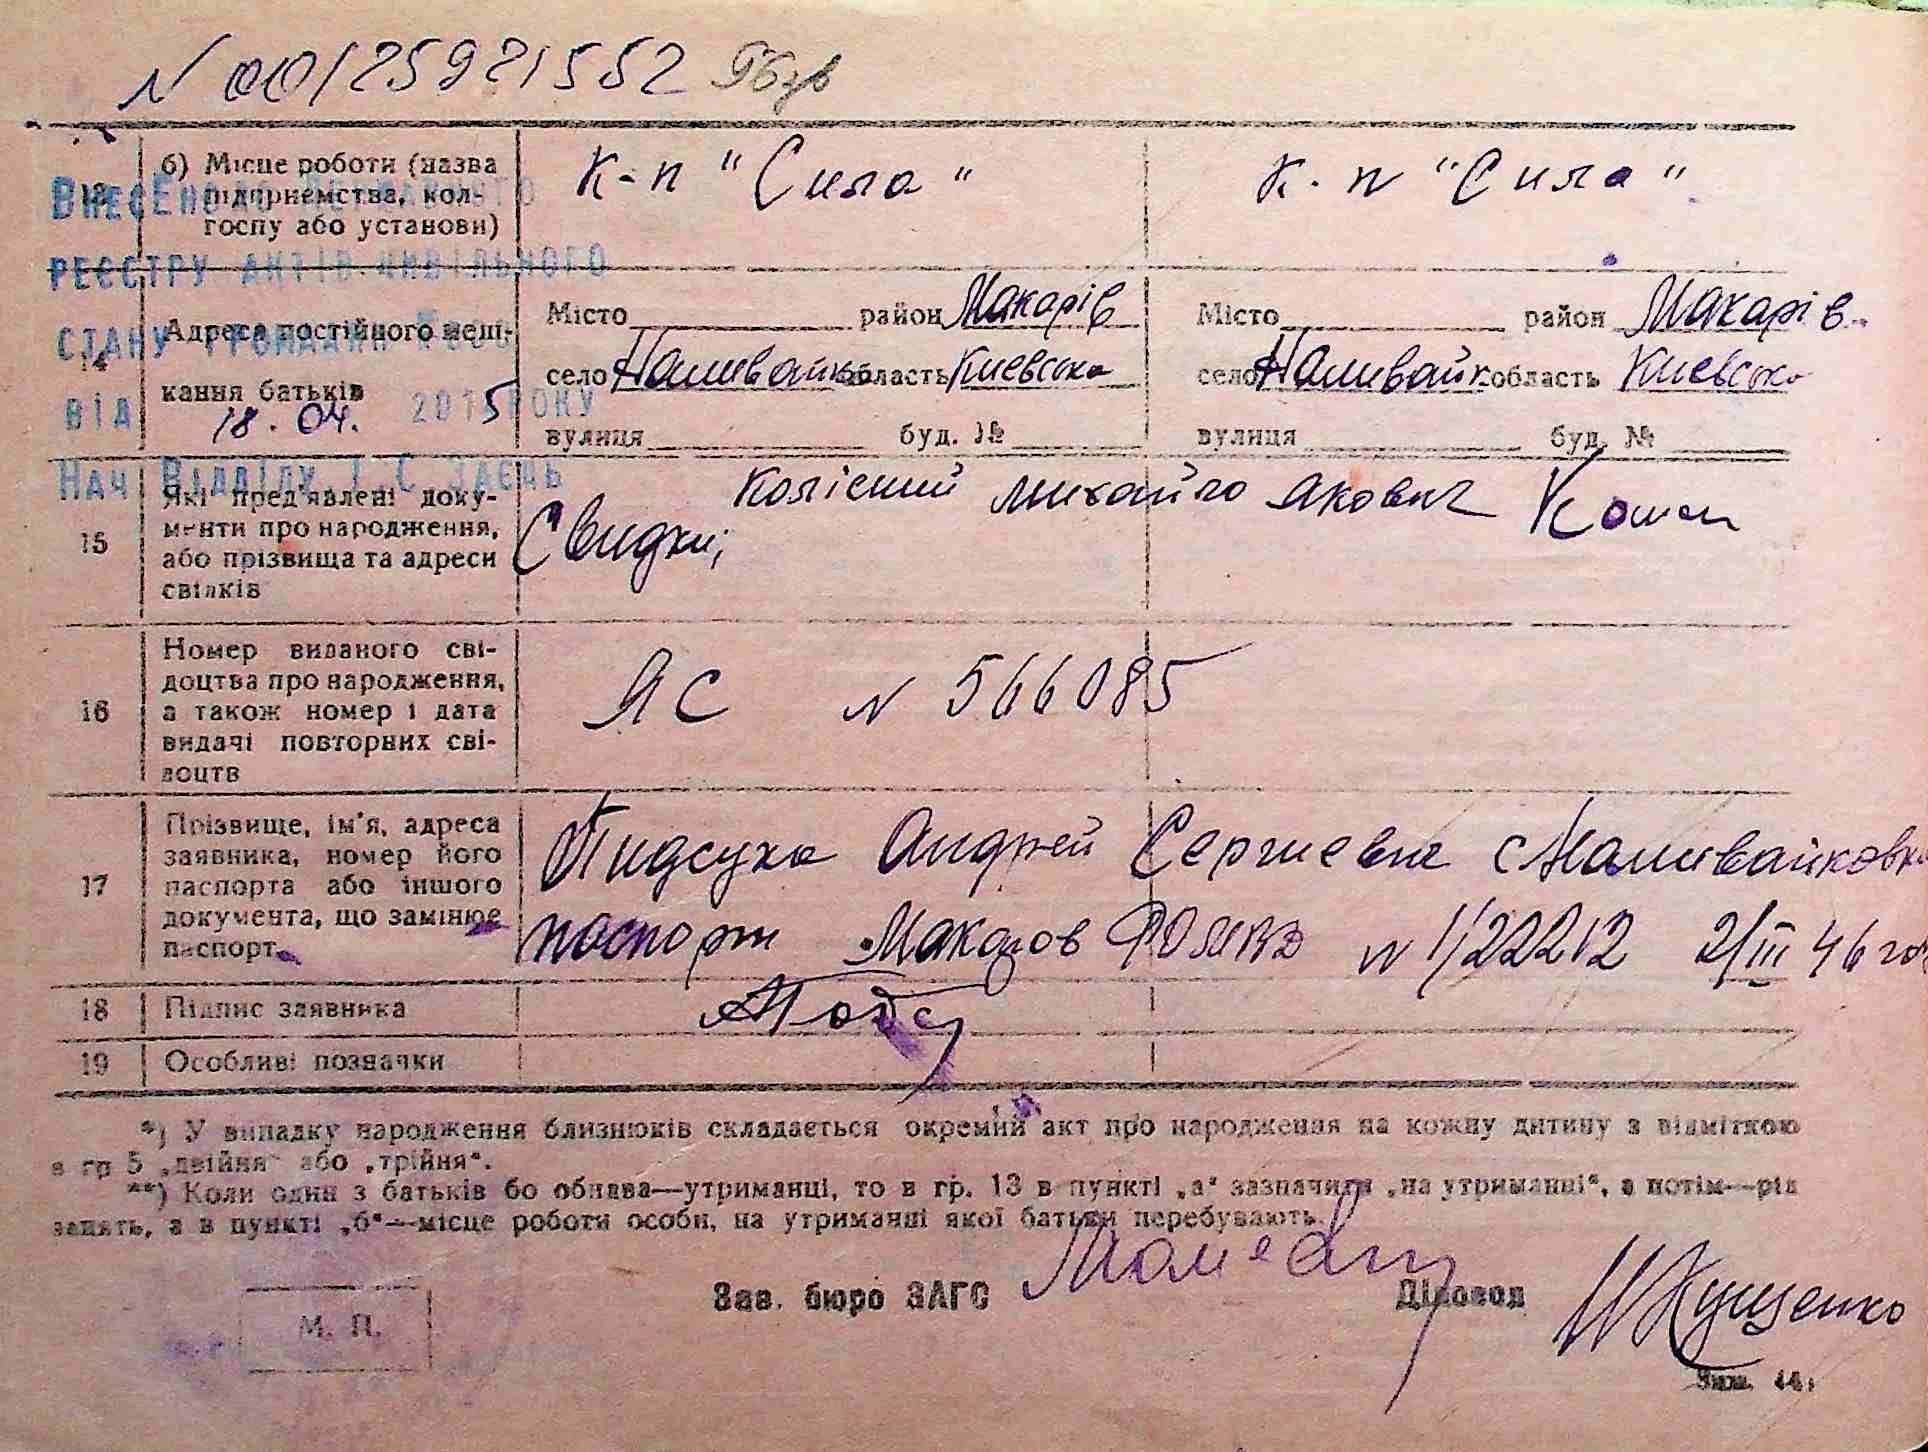 N 00125921552
б) Місце роботи (назва підприємства, колгоспу або установи)
К-п "Сила"
К-п "Сила"
Внесено до Державного
реєстру актів цивільного
стану громадян
від 18.04. 2015 року
Нач Відділу І.С Заєць
14
Адреса постійного мешкання батьків
Місто район Макарів
село Наливайк область Киевська
вулиця буд. №
Місто район Макарів
село Наливайк область Киевська
вулиця буд. №
15
Які пред'явлені документи про народження, або прізвища та адреси свідків
Свидки; Колісний Михайло Якович
16
Номер виданого свідоцтва про народження, а також номер і дата видачі повторних свідоцтв
ЯС N 566085
17
Прізвище, ім'я, адреса заявника, номер його паспорта або іншого документа, що замінює паспорт
Пидсуха Андрей Сергиевич с Наливайковка
паспорт Макаров N 2/III 46
18
Підпис заявника
19
Особливі позначки
*) У випадку народження близнюків складається окремий акт про народження на кожну дитину з відміткою
в гр 5 „двійня" або „трійня".
**) Коли один з батьків бо обидва—утриманці, то в гр. 13 в пункті „а" зазначити „на утриманці", а потім—рід
занять, а в пункті „б"—місце роботи особи, на утриманні якої батьки перебувають.
М. П.
Зав. бюро ЗАГС
Діловод Кущенко